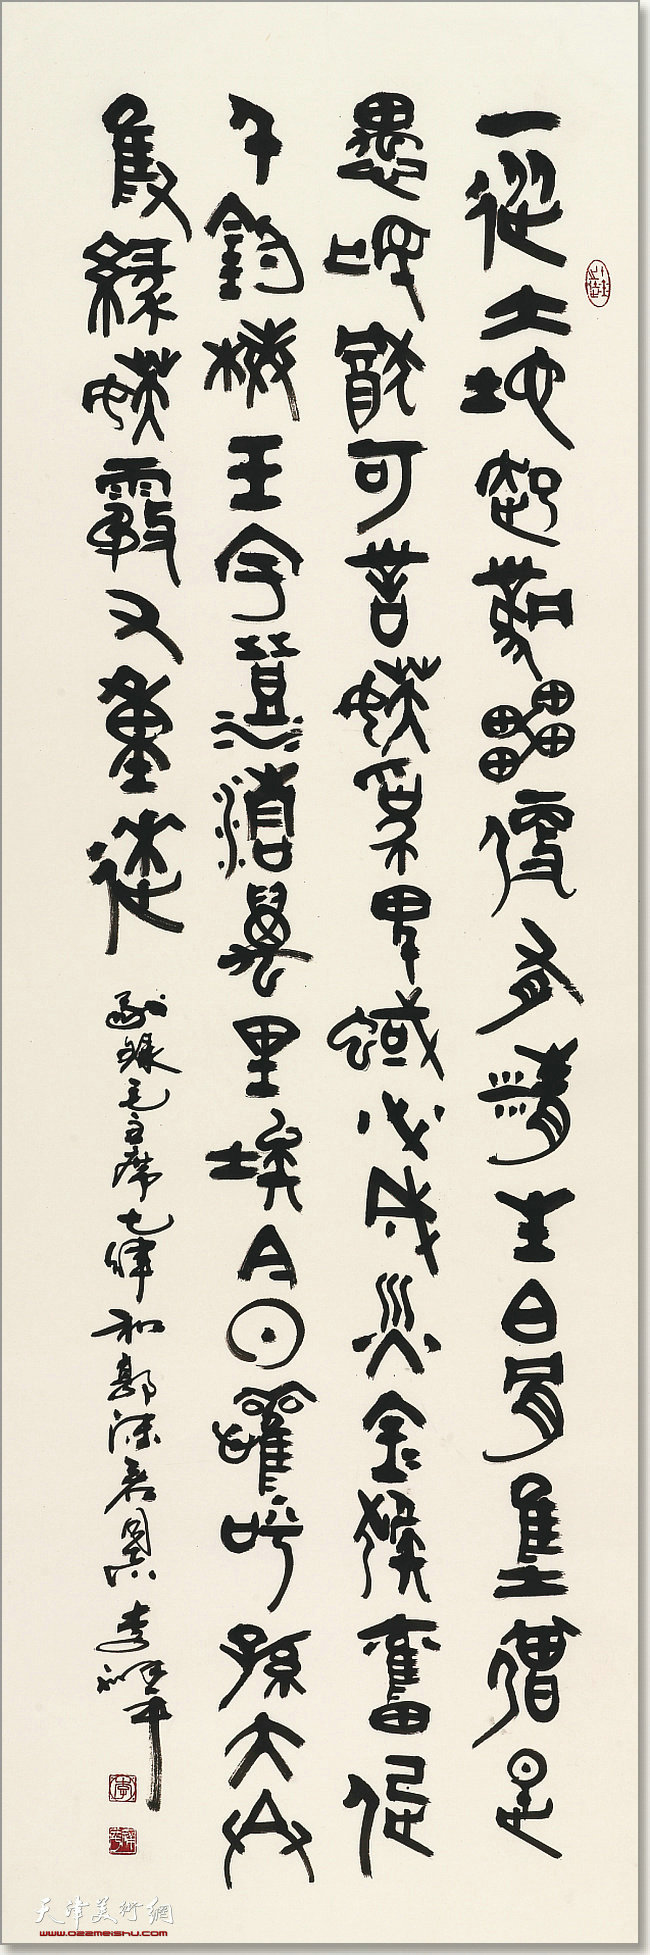 一從大地起風雷便有精生白骨堆僧是
愚氓猶可訓妖為鬼蜮必成災金猴奮起
千鈞棒玉宇澄清萬里埃今日歡呼孫大聖
隻緣妖霧又重來 錄毛主席七律和郭沫若 李
天津美術網
www.022meishu.com